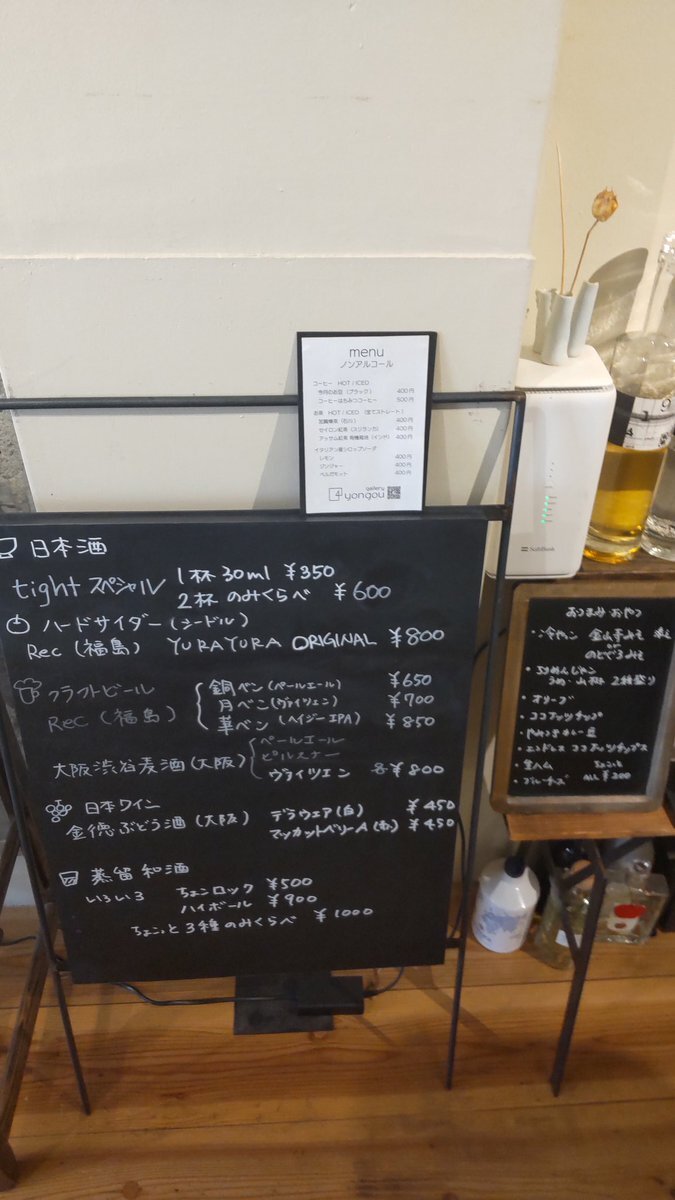 menu
ノンアルコール
コーヒー HOT / ICED
今月のお豆 (ブラック) 400円
コーヒーはちみつコーヒー 500円
お茶 HOT / ICED (全てストレート)
加賀棒茶 (石川) 400円
セイロン紅茶 (スリランカ) 400円
アッサム紅茶 有機栽培 (インド) 400円
イタリアン産シロップソーダ
レモン 400円
ジンジャー 400円
ベルガモット 400円
gallery
yongou
日本酒
tight スペシャル 1杯 30ml ¥350
2杯 のみくらべ ¥600
ハードサイダー (シードル)
Rec (福島) YURAYURA ORIGINAL ¥800
クラフトビール
Rec (福島)
銅ベン (ペールエール) ¥650
月ベン (ヴァイツェン) ¥700
華ベン (ヘイジーIPA) ¥850
大阪渋谷麦酒 (大阪)
ペールエール
ピルスナー
ヴァイツエン 各¥800
日本ワイン
金徳ぶどう酒 (大阪) デラウェア (白) ¥450
マスカットベリーA (赤) ¥450
蒸留和酒
いろいろ ちょンロック ¥500
ハイボール ¥900
ちょこっと3種のみくらべ ¥1000
SoftBank
おつまみ おやつ
・オリーブ
・ココナッツチップ
・エンドレス ココナッツチップス
・生ハム
・ブルーチーズ ALL ¥300